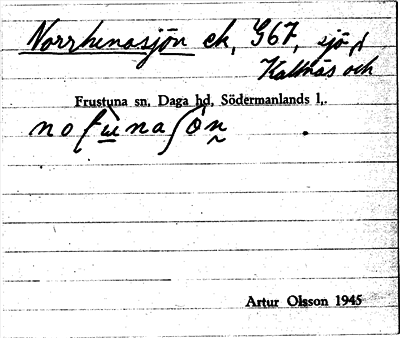 Norrhenasjön ek, G67, sjö i
Kallnäs och
Frustuna sn, Daga hd, Södermanlands l,.
Artur Olsson 1945